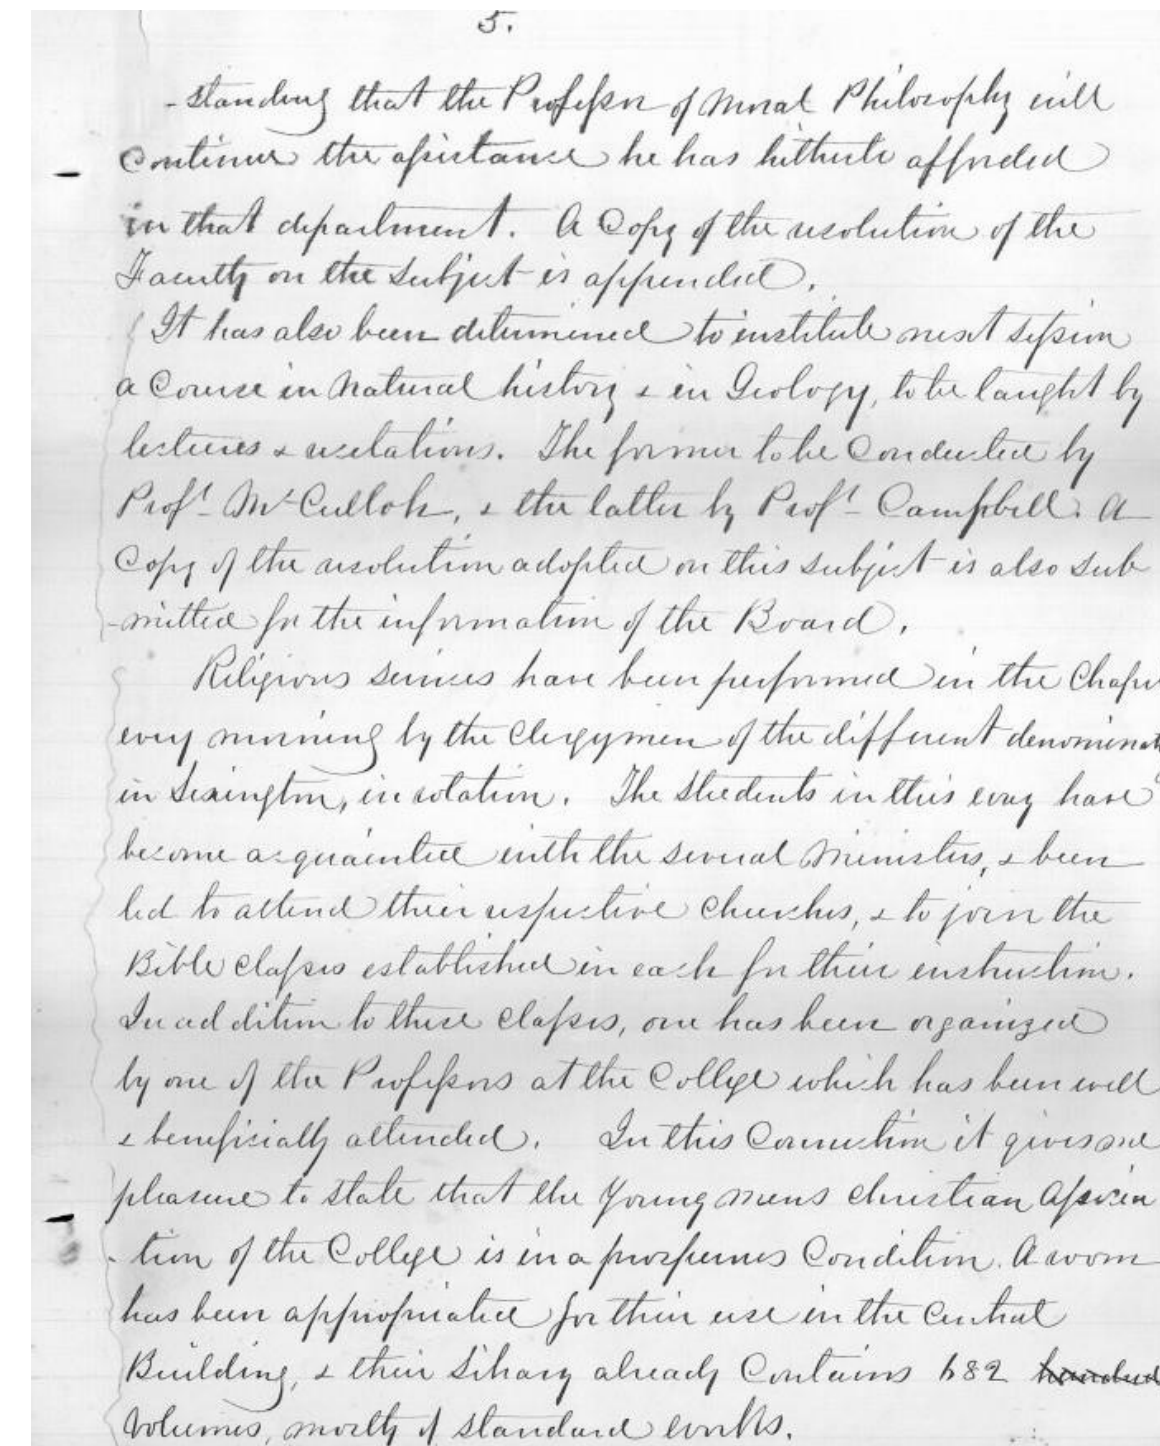 5.
-standing that the Professor of Moral Philosophy will
continue the assistance he has hitherto afforded
in that department. A Copy of the resolution of the
Faculty on the subject is appended.
It has also been determined to institute next session
a Course in Natural history & in Geology, to be taught by
lectures & recitations. The former to be Conducted by
Profr McCulloh, & the latter by Profr Campbell. A
Copy of the resolution adopted on this subject is also sub
-mitted for the information of the Board.
Religious services have been performed in the Chape
every morning by the Clergymen of the different denominat
in Lexington, in rotation. The Students in this way have
become acquainted with the several Ministers, & been
led to attend their respective Churches, & to join the
Bible Classes established in each for their instruction.
In addition to these Classes, one has been organized
by one of the Professors at the College which has been well
& beneficially attended. In this Connection it gives me
pleasure to state that the Young Mens Christian Associa
-tion of the College is in a prosperous Condition. A room
has been appropriated for their use in the Central
Building, & their Library already Contains 682 hundred
Volumes, mostly of standard works.